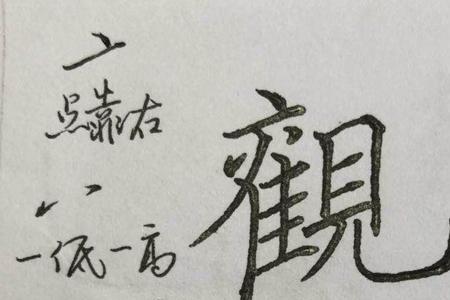 点靠右
一低一高
觀